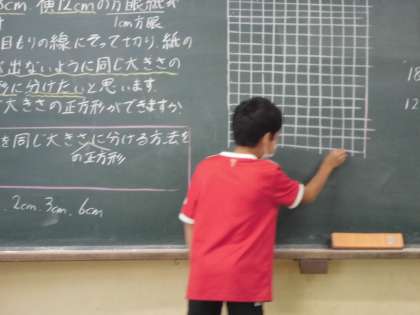 8cm. 横12cmの方眼紙が
1cm方眼
目もりの線にそって切り、紙の
出ないように同じ大きさの
に分けたいと思います。
大きさの正方形ができますか
を同じ大きさに分ける方法を
の正方形
2cm. 3cm. 6cm
18
12